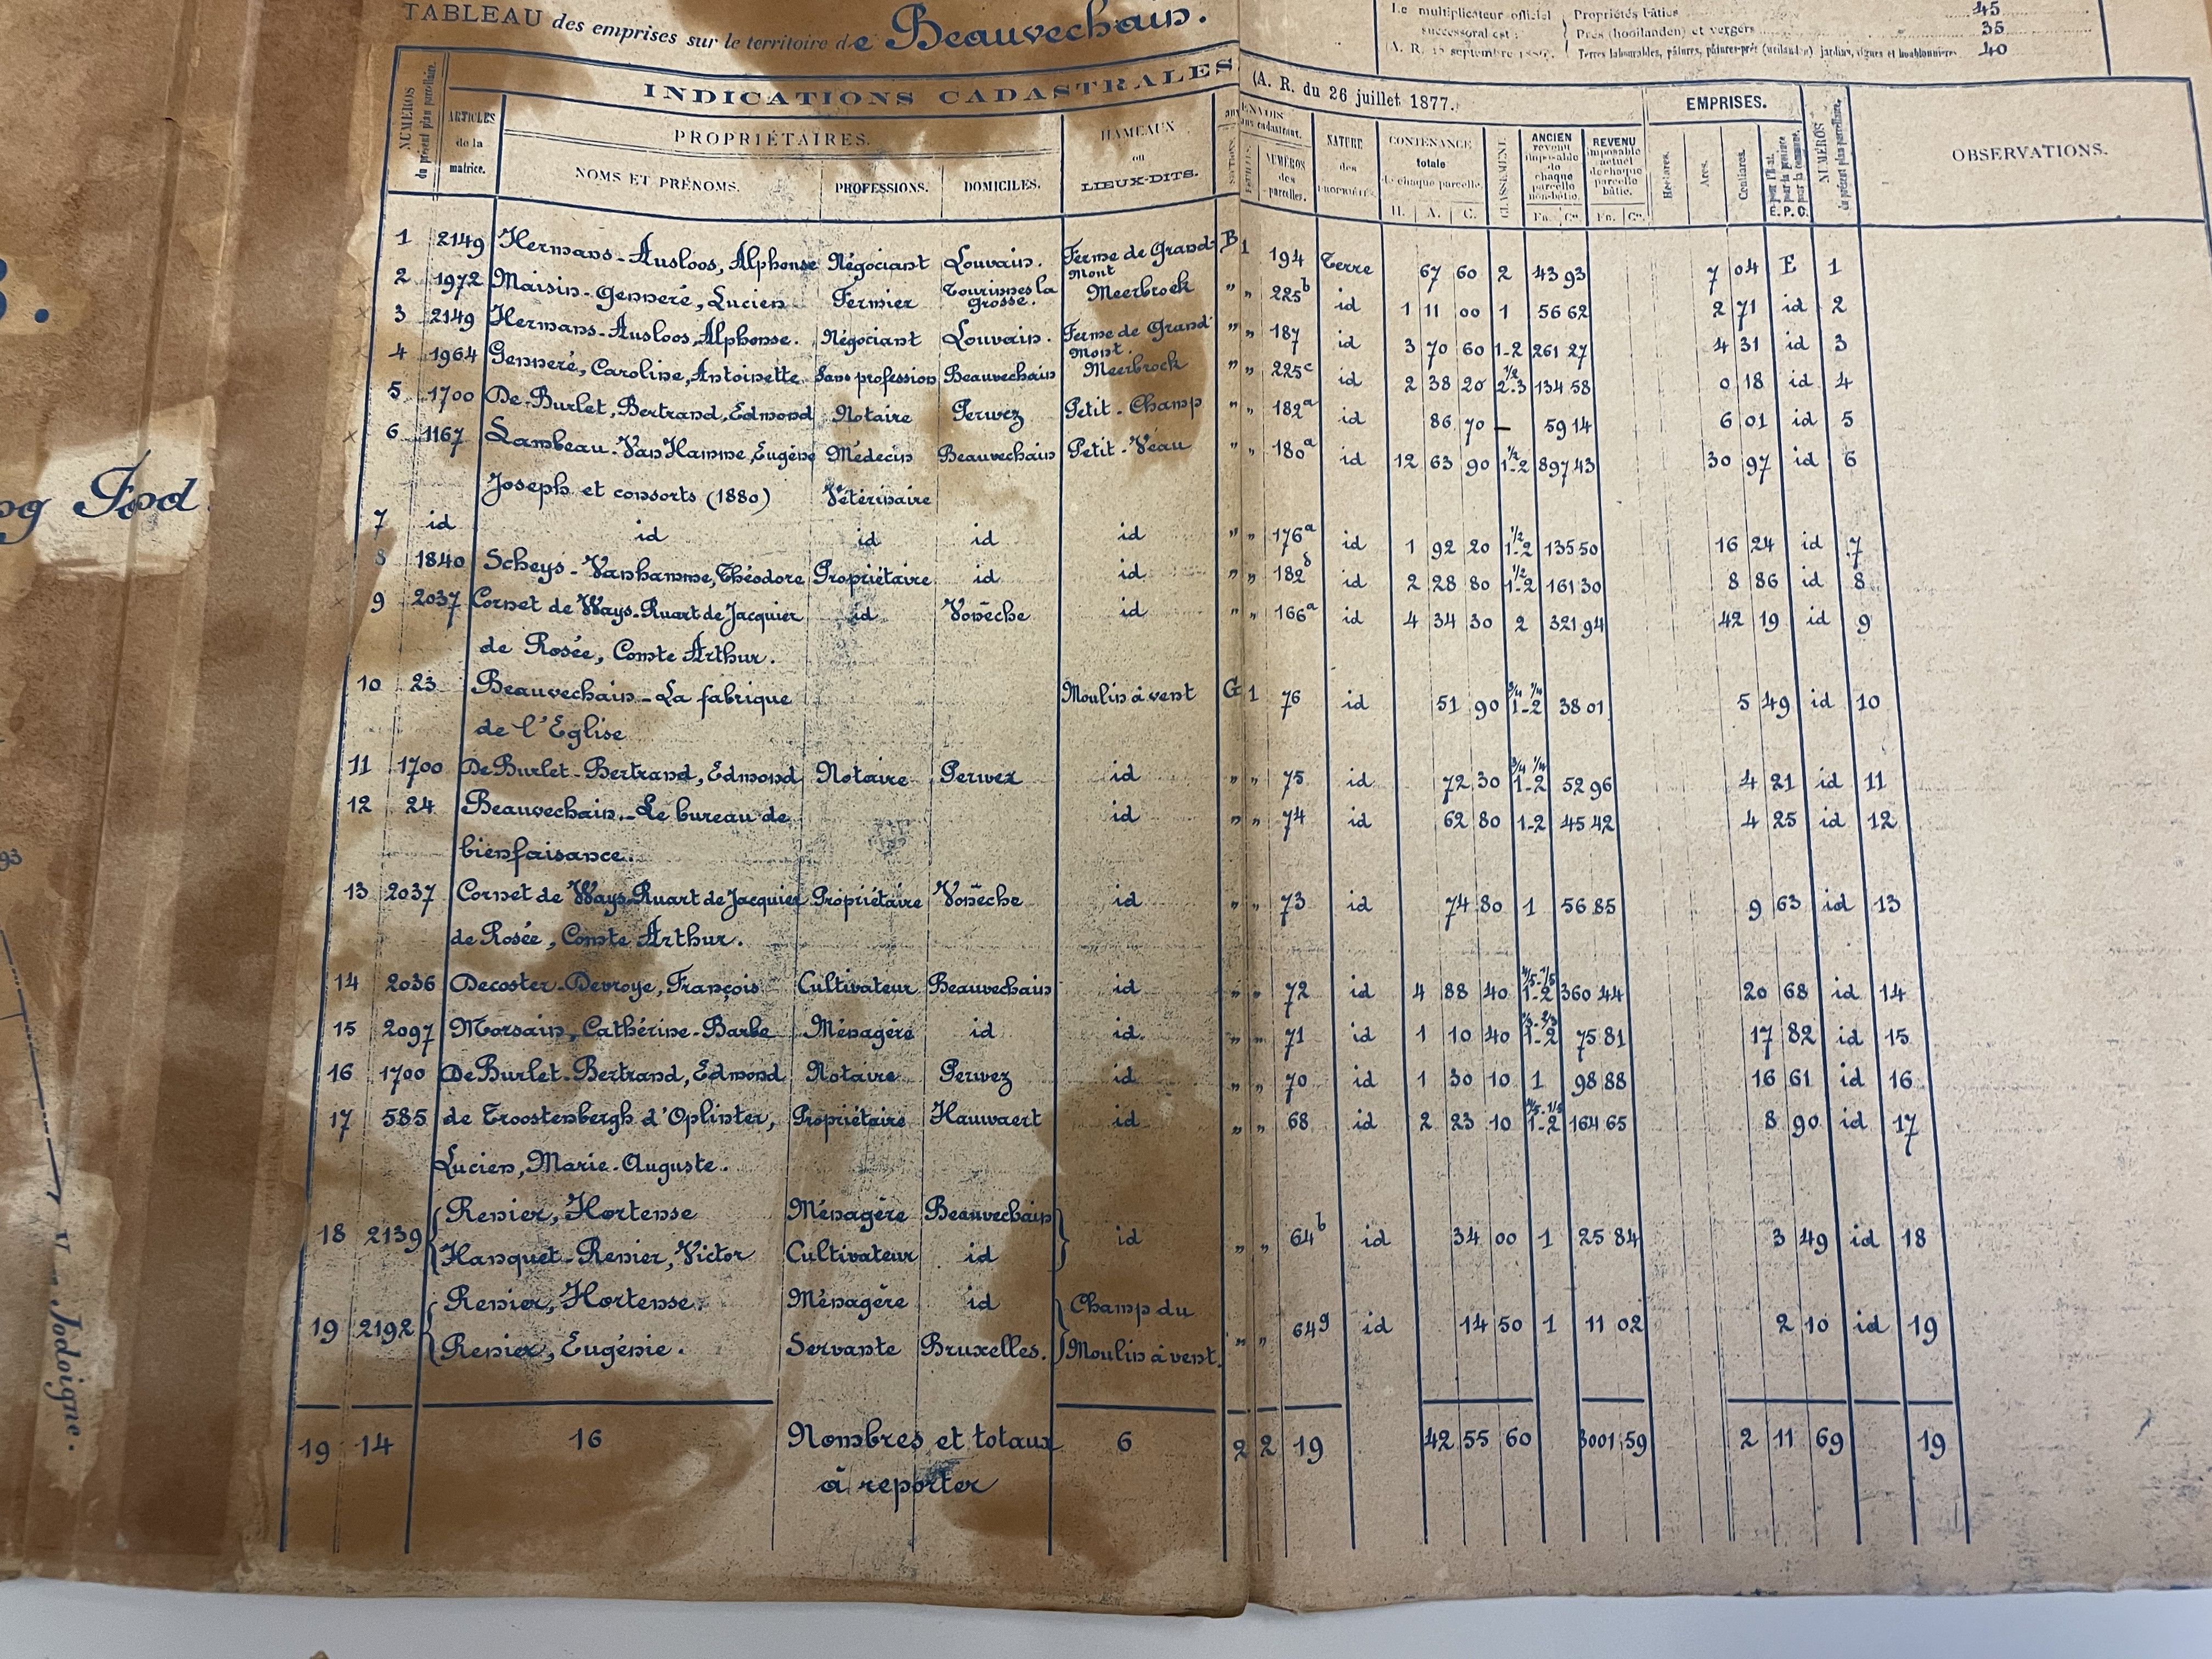 TABLEAU des emprises sur le territoire de Beauvechain.
Le multiplicateur officiel successoral est :
Propriétés bâties 45
Prés (hooilanden) et vergers 35
Terres labourables, pâtures, pâtures-prés (weilanden) jardins, vignes et houblonnières 40
INDICATIONS CADASTRALES (A. R. du 26 juillet 1877.
EMPRISES.
NUMÉROS du présent plan parcellaire.
ARTICLES de la matrice.
PROPRIÉTAIRES.
NOMS ET PRÉNOMS. PROFESSIONS. DOMICILES.
HAMEAUX ou LIEUX-DITS.
NUMÉROS des parcelles.
NATURE des
CONTENANCE totale de chaque parcelle. H. A. C.
CLASSEMENT.
ANCIEN revenu imposable de chaque parcelle non-bâtie. Fr. Cs.
REVENU imposable actuel de chaque parcelle bâtie. Fr. Cs.
Hectares. Ares. Centiares.
E. P. C.
NUMÉROS du présent plan parcellaire.
OBSERVATIONS.
1 2149 Hermans-Ausloos, Alphonse Négociant Louvain. Ferme de Grand-Mont B 1 194 Terre 67 60 2 43 93 7 04 E 1
2 1972 Maisin-Genneré, Lucien Fermier Tourinnes la grosse. Meerbroek " " 225b id 1 11 00 1 56 62 2 71 id 2
3 2149 Hermans-Ausloos, Alphonse. Négociant Louvain. Ferme de Grand Mont. " " 187 id 3 70 60 1-2 261 27 4 31 id 3
4 1964 Genneré, Caroline, Antoinette Sans profession Beauvechain Meerbrock " " 225c id 2 38 20 1/2 2-3 134 58 0 18 id 4
5 1700 De Burlet, Bertrand, Edmond Notaire Perwez Petit-Champ " " 182a id 86 70 — 59 14 6 01 id 5
6 1167 Lambeau-Van Hamme, Eugène Médecin Beauvechain Petit-Veau " " 180a id 12 63 90 1/2 1-2 897 43 30 97 id 6
Joseph et consorts (1880) Vétérinaire
7 id id id id id " " 176a id 1 92 20 1/2 1-2 135 50 16 24 id 7
8 1840 Scheys-Vanhamme, Théodore Propriétaire id id " " 182b id 2 28 80 1/2 1-2 161 30 8 86 id 8
9 2037 Cornet de Ways-Ruart de Jacquier id Vonêche id " " 166a id 4 34 30 2 321 94 42 19 id 9
de Rosée, Comte Arthur.
10 23 Beauvechain - La fabrique Moulin à vent G 1 76 id 51 90 3/4 1/4 1-2 38 01 5 49 id 10
de l'Eglise
11 1700 De Burlet-Bertrand, Edmond Notaire Perwez id " " 75 id 72 30 3/4 1/4 1-2 52 96 4 21 id 11
12 24 Beauvechain.-Le bureau de id " " 74 id 62 80 1-2 45 42 4 25 id 12
bienfaisance.
13 2037 Cornet de Ways-Ruart de Jacquier Propriétaire Vonêche id " " 73 id 74 80 1 56 85 9 63 id 13
de Rosée, Comte Arthur.
14 2036 Decoster-Devroye, François Cultivateur Beauvechain id " " 72 id 4 88 40 4/5-1/5 1-2 360 44 20 68 id 14
15 2097 Morsain, Cathérine-Barbe Ménagère id id " " 71 id 1 10 40 1/3-2/3 1-2 75 81 17 82 id 15
16 1700 De Burlet-Bertrand, Edmond Notaire Perwez id " " 70 id 1 30 10 1 98 88 16 61 id 16
17 585 de Troostenbergh d'Oplinter, Propriétaire Hauwaert id " " 68 id 2 23 10 4/5-1/5 1-2 164 65 8 90 id 17
Lucien, Marie-Auguste.
Renier, Hortense Ménagère Beauvechain
18 2139 id " " 64b id 34 00 1 25 84 3 49 id 18
Hanquet-Renier, Victor Cultivateur id
Renier, Hortense. Ménagère id Champ du
19 2192 " " 64g id 14 50 1 11 02 2 10 id 19
Renier, Eugénie. Servante Bruxelles. Moulin à vent.
19 14 16 Nombres et totaux 6 2 2 19 42 55 60 3001 59 2 11 69 19
à reporter
Jodoigne.
93